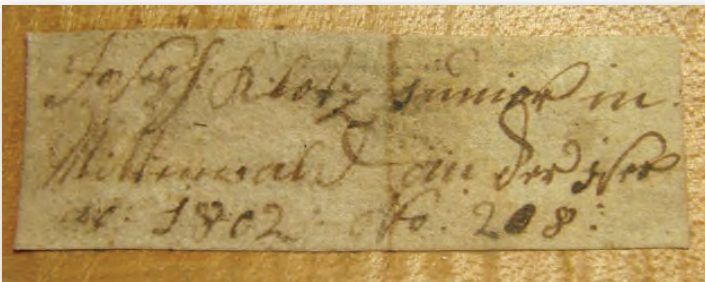 Joseph Klotz junior in
Mittenwald an der iser
ao: 1802: No. 208: